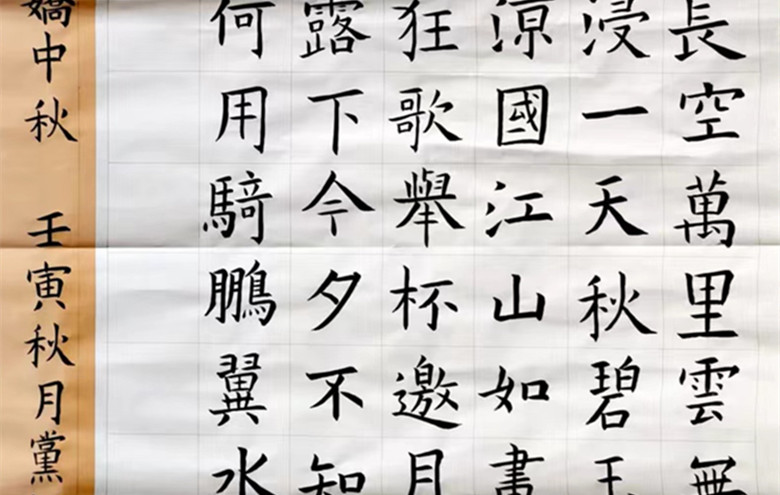 長空萬里雲無
浸一天秋碧玉
涼國江山如畫
狂歌舉杯邀月
露下今夕不知
何用騎鵬翼水
嬌中秋 壬寅秋月黨